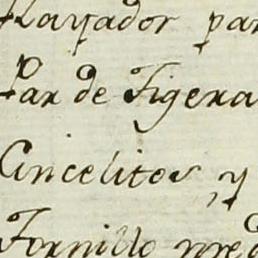 Rayador par
Par de Tigera
Cincelitos, y
Tornillo